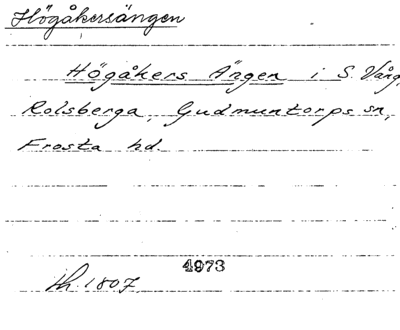 Högåkersängen
Högåkers Ängen i S. Vång,
Rolsberga, Gudmuntorps sn,
Frosta hd.
4973
lh. 1807